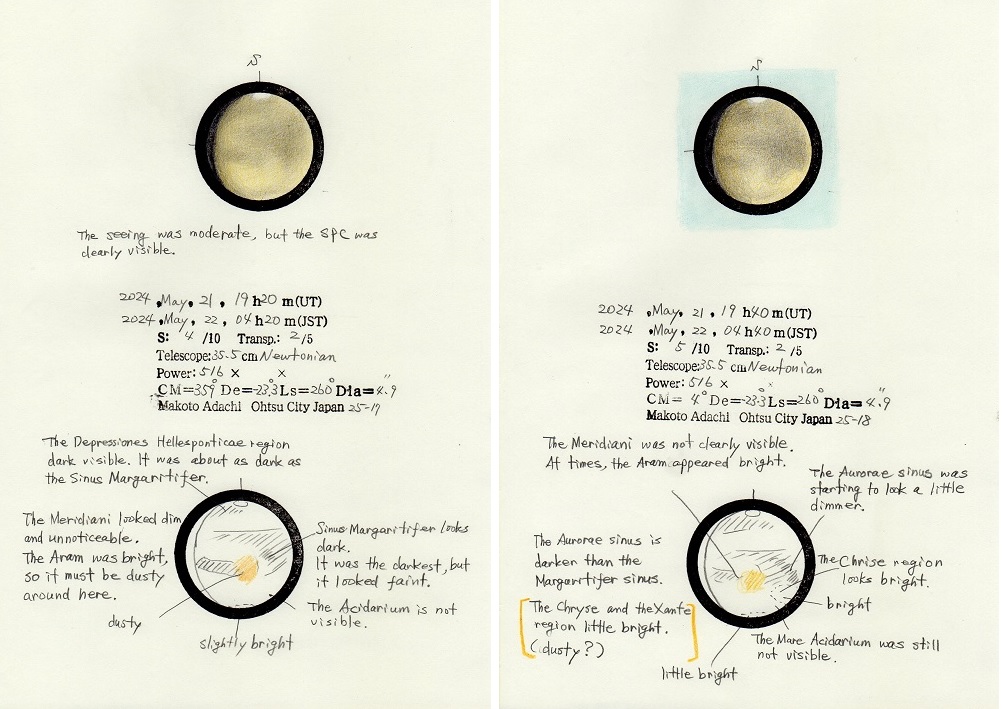 S
The seeing was moderate, but the SPC was
clearly visible.
2024 .May. 21, 19 h20 m(UT)
2024 .May. 22, 04 h20 m(JST)
S: 4 /10 Transp.: 2/5
Telescope:35.5 cm Newtonian
Power: 516 × ×
CM=359° De=-23.3 Ls=260° Dia=4.9"
Makoto Adachi Ohtsu City Japan 25-17
The Depressiones Hellesponticae region
dark visible. It was about as dark as
the Sinus Margaritifer.
The Meridiani looked dim
and unnoticeable.
The Aram was bright,
so it must be dusty
around here.
Sinus Margaritifer looks
dark.
It was the darkest, but
it looked faint.
The Acidarium is not
visible.
dusty
slightly bright
S
2024 .May. 21, 19 h40 m(UT)
2024 .May. 22, 04 h40 m(JST)
S: 5 /10 Transp.: 2 /5
Telescope:35.5 cm Newtonian
Power: 516 × ×
CM= 4° De=-23.3 Ls=260° Dia=4.9"
Makoto Adachi Ohtsu City Japan 25-18
The Meridiani was not clearly visible.
At times, the Aram appeared bright.
The Aurorae sinus was
starting to look a little
dimmer.
The Aurorae sinus is
darker than the
Margarritifer sinus.
The Chrise region
looks bright.
bright
The Chryse and the Xante
region little bright.
(dusty?)
The Mare Acidarium was still
not visible.
little bright